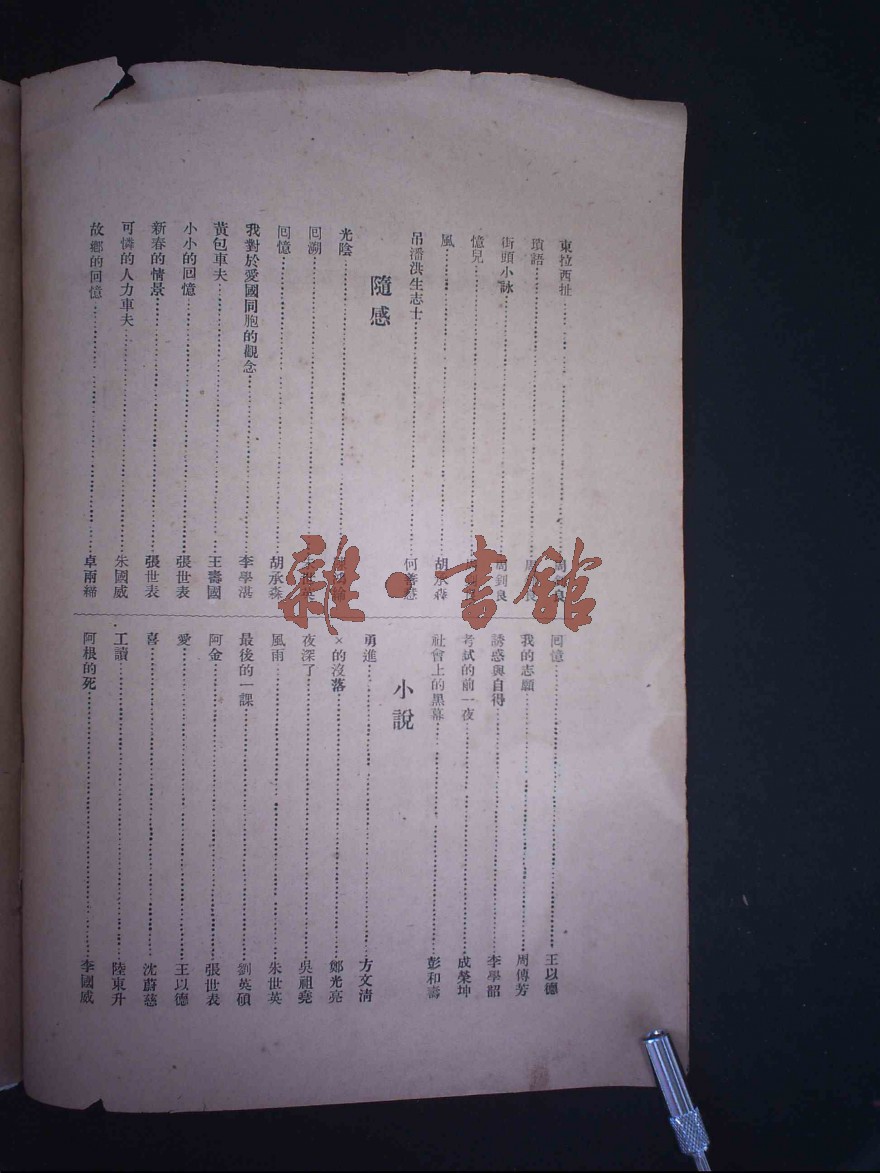 東拉西扯 周釗良
瑣語 周
街頭小詠 周釗良
憶兒
風 胡承森
吊潘洪生志士 何
隨感
光陰
回溯 朱世英
回憶 胡承森
我對於愛國同胞的觀念 李學湛
黃包車夫 王壽國
小小的回憶 張世表
新春的情景 張世表
可憐的人力車夫 朱國威
故鄉的回憶 卓雨締
回憶 王以德
我的志願 周傳芳
誘惑與自得 李學韶
考試的前一夜 成榮坤
社會上的黑幕 彭和壽
小說
勇進 方文清
×的沒落 鄭光亮
夜深了 吳祖堯
風雨 朱世英
最後的一課 劉英碩
阿金 張世表
愛 王以德
喜 沈蔚慈
工讀 陸東升
阿根的死 李國威
雜·書館